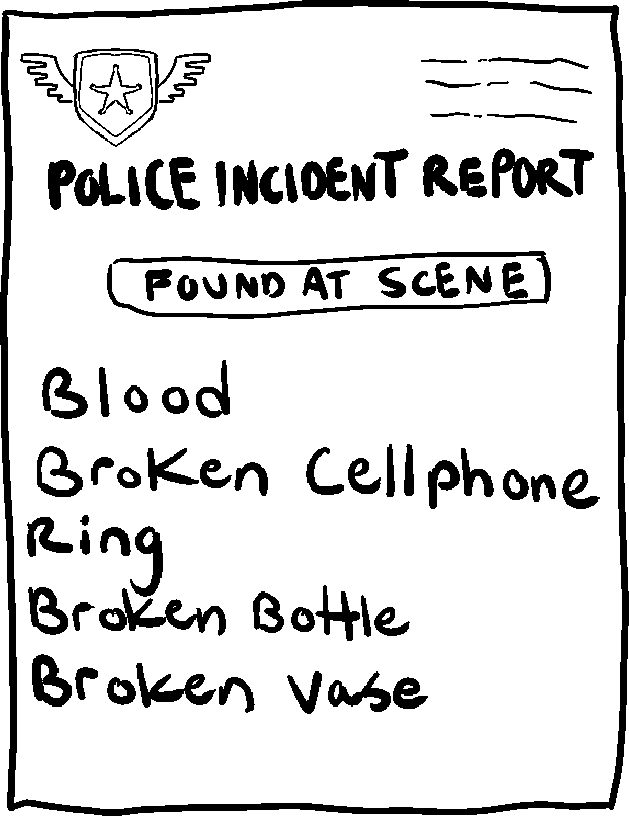 POLICE INCIDENT REPORT
FOUND AT SCENE
Blood
Broken Cellphone
Ring
Broken Bottle
Broken Vase